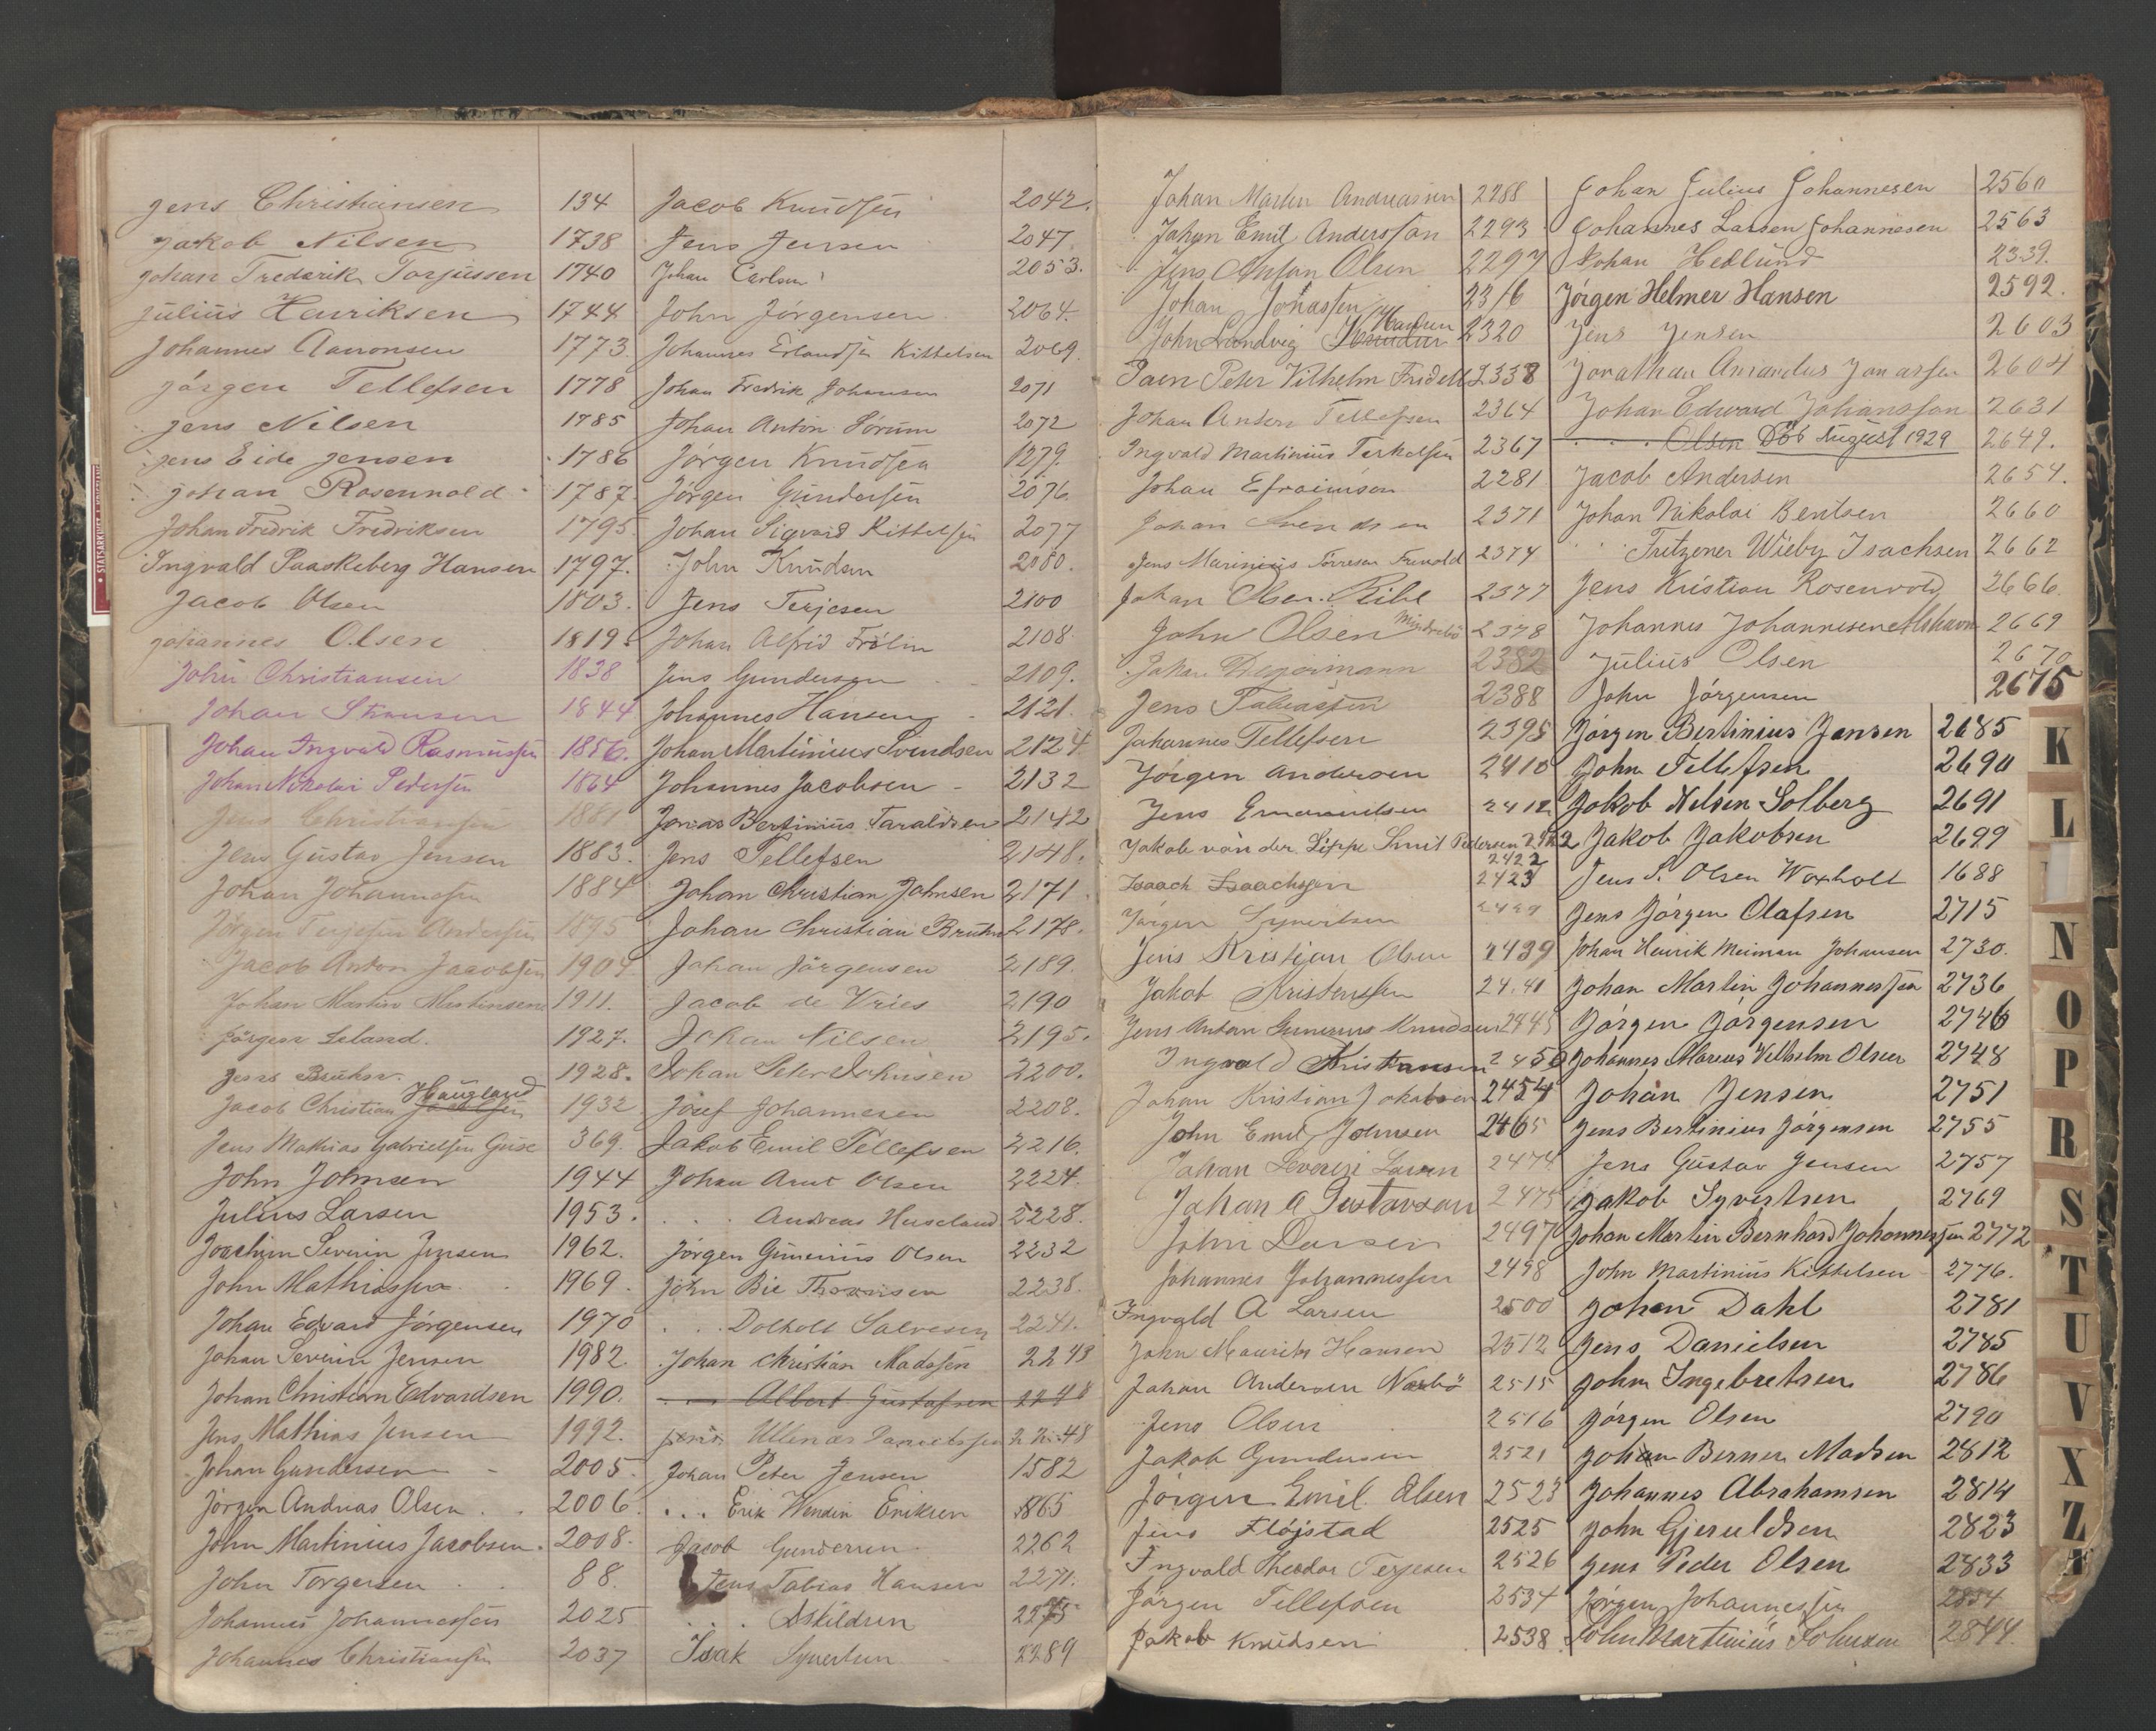 Jens Christiansen 134
Jakob Nilsen 1738
Johan Frederik Torjussen 1740
Julius Henriksen 1744
Johannes Aanonsen 1773.
Jörgen Tellefsen 1778
Jens Nilsen 1785
Jens Eide Jensen 1786
Johan Rosenvold 1787.
Johan Fredrik Fredriksen 1795
Ingvald Paaskeberg Hansen 1797.
Jacob Olsen 1803.
Johannes Olsen 1819.
John Christiansen 1838
Johan Skausen 1844
Johan Ingvald Rasmussen 1856.
Johan Nikolai Pedersen 1864
Jens Christiansen 1881
Jens Gustav Jensen 1883.
Johan Johannesen 1884
Jörgen Terjesen Andersen 1895
Jacob Anton Jacobsen 1904
Johan Martin Martinsen 1911.
Jörgen Leland. 1927.
Jens Bruhn. 1928.
Haugland
Jacob Christian Jacobsen 1932
Jens Mathias Gabrielsen Guse 369.
John Johnsen 1944
Julius Larsen 1953.
Joachim Severin Jensen 1962.
John Mathiassen 1969.
Johan Edvard Jörgensen 1970
Johan Severin Jensen 1982.
Johan Christian Edvardsen 1990.
Jens Mathias Jensen 1992.
Johan Gundersen 2005.
Jörgen Andreas Olsen 2006
John Martinius Jacobsen. 2008.
John Torgersen 88.
Johannes Johannessen 2025
Johannes Christiansen 2037
Jacob Knudsen 2042.
Jens Jensen 2047
Johan Carlson 2053.
John Jörgensen 2064.
Johannes Erlandsen Kittelsen 2069.
Johan Fredrik Johansen 2071
Johan Anton Sörum 2072
Jörgen Knudsen 1279.
Jörgen Gundersen 2076
Johan Sigvard Kittelsen 2077
John Knudsen 2080.
Jens Terjesen 2100
Johan Alfrid Frölin 2108
Jens Gundersen 2109.
Johannes Hansen 2121.
Johan Martinius Svendsen 2124.
Johannes Jacobsen 2132
Jonas Bertinius Taraldsen 2142
Jens Tellefsen 2148.
Johan Christian Johnsen 2171
Johan Christian Bruhn 2178.
Johan Jörgensen 2189.
Jacob de Vries 2190
Johan Nilsen 2195.
Johan Peter Johnsen 2200.
Josef Johannesen 2208.
Jakob Emil Tellefsen 2216.
Johan Arnt Olsen 2224.
. . . Andreas Huseland 2228.
Jörgen Gunerius Olsen 2232
John Bie Thomsen 2238.
. . . Dolholt Salvesen 2241.
Johan Christian Madssen 2243
. . . Albert Gustafsen 2248
Ullenæs Danielsen 2248
Johan Peter Jensen 1582
. . . Erik Wendin Eriksen 1865
Jacob Gundersen 2262
Jens Tobias Hansen 2271.
. . . Eskildsen 2275
Isak Syvertsen 2289
Johan Martin Andreasen 2288
Johan Emil Andersson 2293
Jens Anton Olsen 2297
Johan Jonassen 2316
Hansen
John Landvig 2320
Jaen Peter Vilhelm Fridell 2338
Johan Anton Tellefsen 2364
Ingvald Martinius Terkelsen 2367
Johan Efraimson 2281
Johan Svendsen 2371
Jens Marinius Torresen Frivold 2374
Johan Olsen Ribe 2377
John Olsen 2378
Johan Degermann 2382
Jens Tobiassen 2388
Johannes Tellefsen 2395
Jörgen Andersen 2410
Jens Emanuelsen 2412
Jakob van der Lippe Smit Pedersen 2422
2422
Isaach Isaachsen 2423
Jörgen Syvertsen 2429
Jens Kristjan Olsen 2439
Jakob Kristensen 24.41
Jens Anton Gunerius Knudsen 2445
Ingvald Kristiansen 2450
Johan Kristian Jakobsen 2454
John Emil Johnsen 2465
Johan Severin Larsen 2474
Johan A Gustavson 2475
John Larsen 2497
Johannes Johannessen 2498
Ingvald A Larsen 2500
John Mauritz Hansen 2512
Johan Andersen Næsbö 2515
Jens Olsen 2516
Jakob Gundersen 2521
Jörgen Emil Olsen 2523
Jens Flöjstad 2525
Ingvald Theodor Terjesen 2526
Jörgen Tellefsen 2534
Jakob Knudsen 2538
Johan Julius Johannesen 2560
Johannes Larsen Johannesen 2563
Johan Hedlund 2339.
Jörgen Helmer Hansen 2592.
Jens Jensen 2603
Jonathan Amandus Jonassen 2604
Johan Edward Johansson 2631
. . . Olsen Döb August 1929 2649.
Jacob Andersen 2654.
Johan Nikolai Bentsen 2660
. . Tretzener Wieby Isachsen 2662
Jens Kristian Rosenvold 2666.
Johannes Johannesen 2669
Julius Olsen 2670
John Jörgensen 2675
Jörgen Bertinius Jensen 2685
John Tellefsen 2690
Jakob Nelsen Solberg 2691
Jakob Jakobsen 2699
Jens S. Olsen Woxholt 1688
Jens Jörgen Olafsen 2715
Johan Henrik Meiman Johansen 2730.
Johan Martin Johannessen 2736
Jörgen Jörgensen 2746
Johannes Marius Vilhelm Olsen 2748
Johan Jensen 2751
Jens Bertinius Jörgensen 2755
Jens Gustav Jensen 2757
Jakob Syvertsen 2769
Johan Martin Bernhard Johannessen 2772
John Martinius Kittelsen 2776.
Johan Dahl 2781
Jens Danielsen 2785
John Ingebretsen 2786
Jörgen Olsen 2790
Johan Berner Madsen 2812
Johannes Abrahamsen 2814
John Gjeruldsen 2823
Jens Peder Olsen 2833
Jörgen Johannessen 2834
John Martinius Johnsen 2844.
K
L
N
O
P
R
S
T
U
V
X
Z